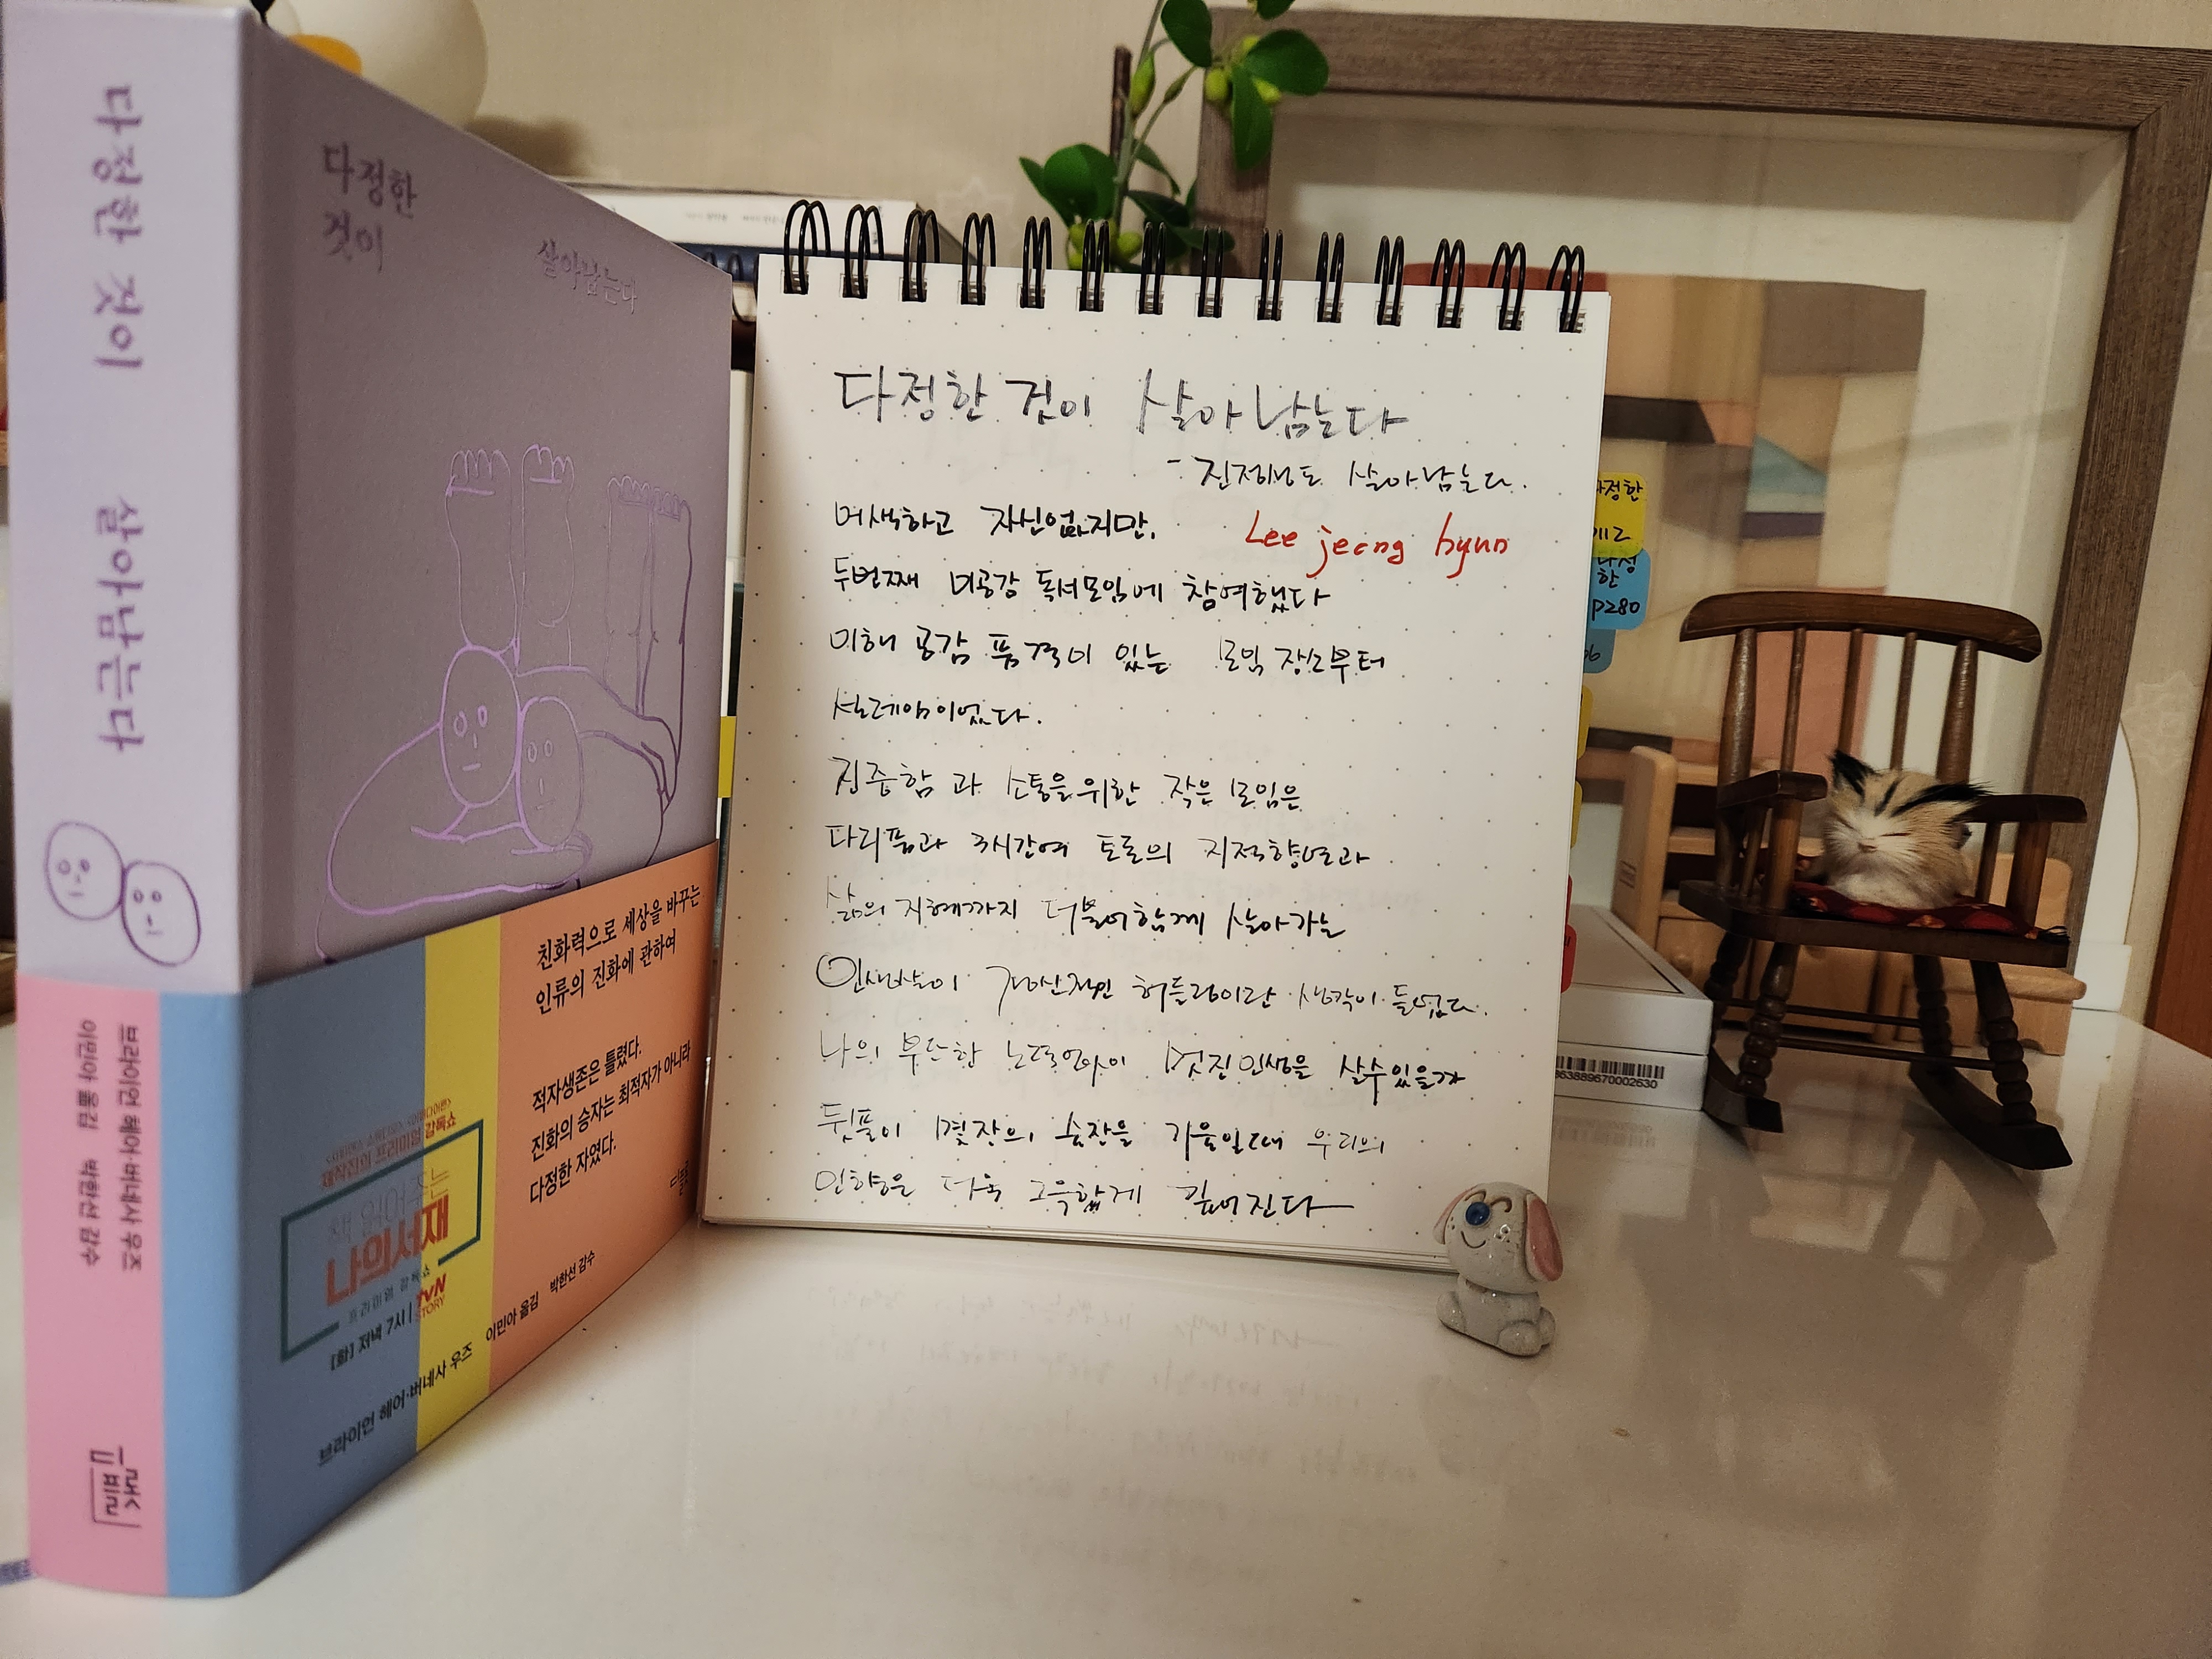 다정한 것이 살아남는다
브라이언 헤어·버네사 우즈
이민아 옮김 박한선 감수
디플롯
다정한
것이
살아남는다
친화력으로 세상을 바꾸는
인류의 진화에 관하여
적자생존은 틀렸다.
진화의 승자는 최적자가 아니라
다정한 자였다.
디플롯
제작진의 프리미엄 강독쇼
책 읽어주는
나의서재
프리미엄 강독쇼
[화] 저녁 7시 | tvN
STORY
브라이언 헤어·버네사 우즈 이민아 옮김 박한선 감수
다정한 것이 살아남는다
- 진정성도 살아남는다.
어색하고 자신없지만,
Lee jeong hyun
두번째 이공감 독서모임에 참여했다
이해 공감 품격이 있는 모임 장소부터
설레임이었다.
진중함과 소통을위한 작은모임은
다리품과 3시간여 토론의 지적향연과
삶의 지혜까지 더불어함께 살아가는
인생샷이 허들링이란 생각이 들었다.
나의 부단한 노력없이 멋진인생을 살수있을까
뒷풀이 몇잔의 술잔을 기울일때 우리의
인향은 더욱 그윽함게 깊어진다
다정한
한
P280
863889670002630